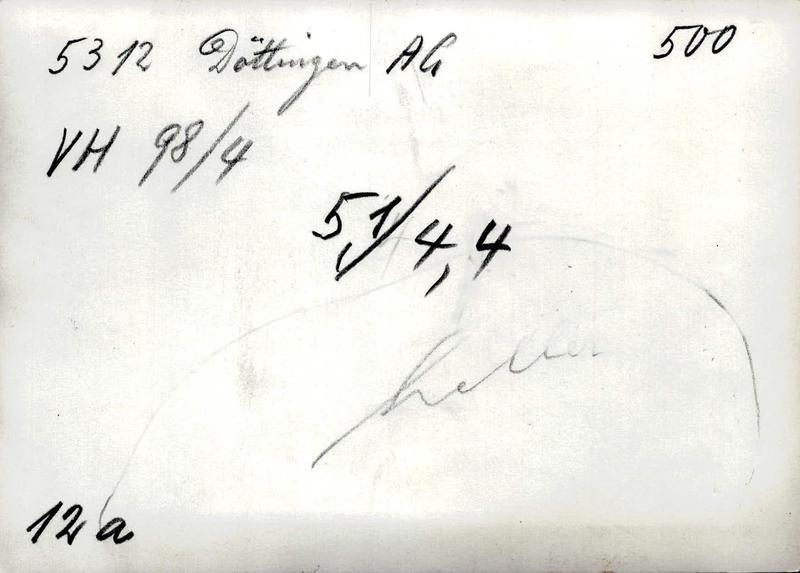 5312 Döttingen AG 500
VH 98/4
5,1/4,4
heller
12a